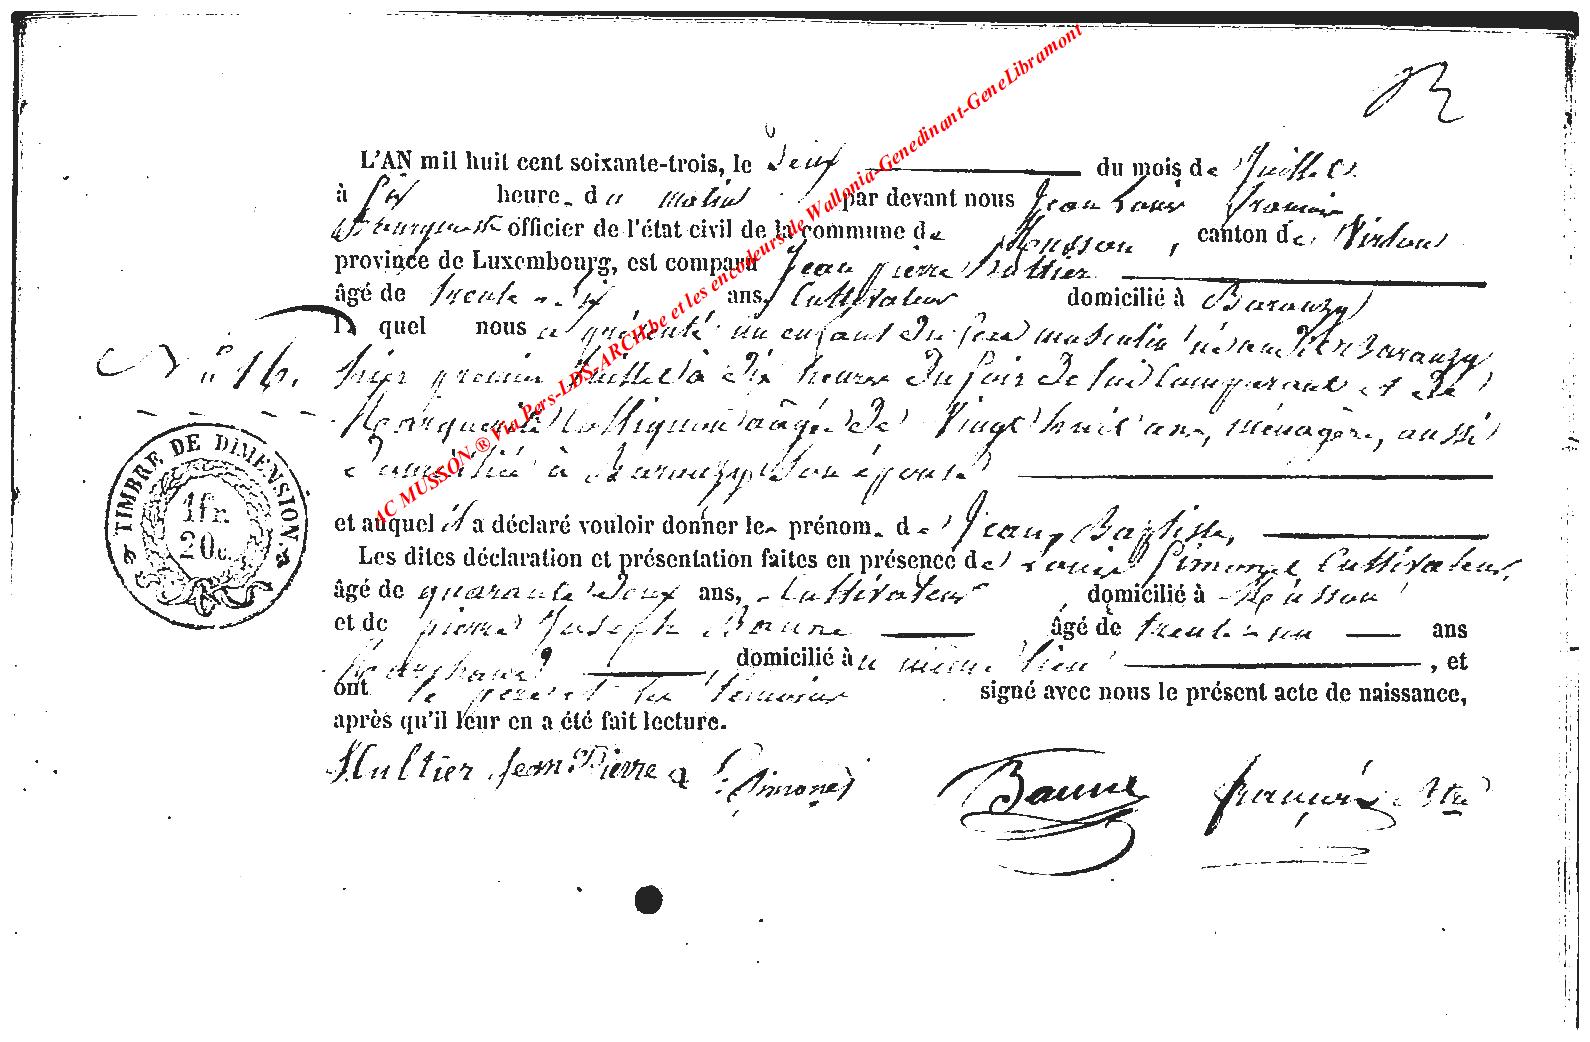 L'AN mil huit cent soixante-trois, le Deux du mois de Juillet
à six heure. du matin par devant nous Jean Louis François
Bourguest officier de l'état civil de la commune de Musson, canton de Virton
province de Luxembourg, est comparu Jean pierre Hultier
âgé de trente-six ans, Cultivateur domicilié à Baranzy
l quel nous a présenté un enfant du sexe masculin né au dit Baranzy
N° 16. hier premier Juillet à dix heures du soir de lui Comparant et de
Marguerite âgée de Vingt huit ans, ménagère, aussi
domiciliée à Baranzy son épouse
et auquel il a déclaré vouloir donner le prénom. de Jean Baptiste,
Les dites déclaration et présentation faites en présence de Louis Simonet Cultivateur,
âgé de quarante deux ans, Cultivateur, domicilié à Musson
et de pierre Joseph Baune âgé de trente-un ans
, domicilié à u même lieu, et
ont le père et les témoins signé avec nous le présent acte de naissance,
après qu'il leur en a été fait lecture.
Hultier Jean Pierre Simonet Baune françois
TIMBRE DE DIMENSION.
1 fr.
20 c.
AC MUSSON ® Via Pers-LDS-ARCH.be et les encodeurs de Wallonia-Genedinant-GeneLibramont